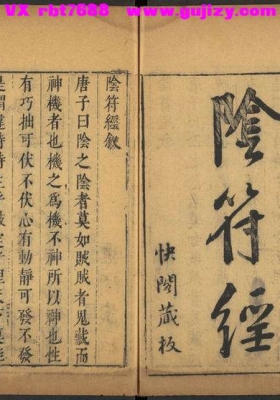 VX rbt7888 www.gujizy.com
陰符經
快閣藏板
陰符經敘
唐子曰陰之陰者莫如賊賊者鬼藏而
神機者也機之爲機不神所以神也性
有巧拙可伏不伏心有動靜可發不發